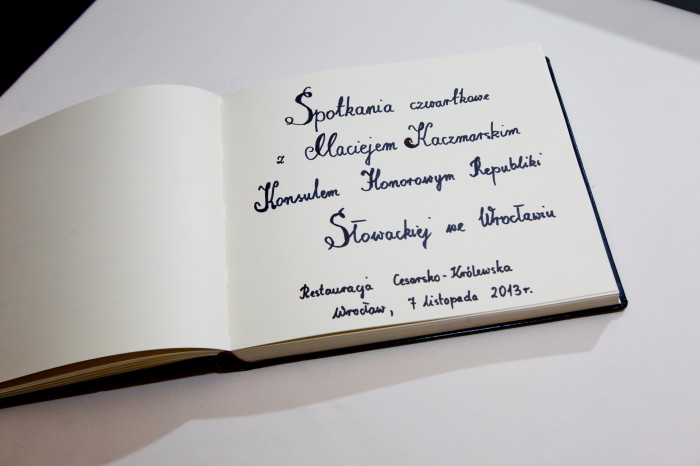 Spotkania czwartkowe
z Maciejem Kaczmarskim
Konsulem Honorowym Republiki
Słowackiej we Wrocławiu
Restauracja Cesarsko-Królewska
Wrocław, 7 listopada 2013r.